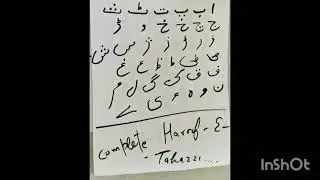 ا ب پ ت ٹ ث
ج چ ح خ د ڈ
ذ ر ڑ ز ژ س ش
ص ض ط ظ ع غ
ف ق ک گ ل م
ن و ہ ء ی ے
Complete Haroof-E-
Tahazzi....
InShOt